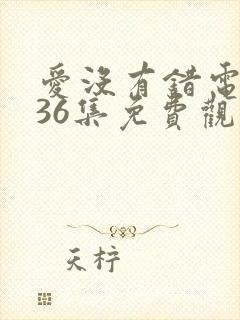 愛沒有錯電
36集免費觀
天柠